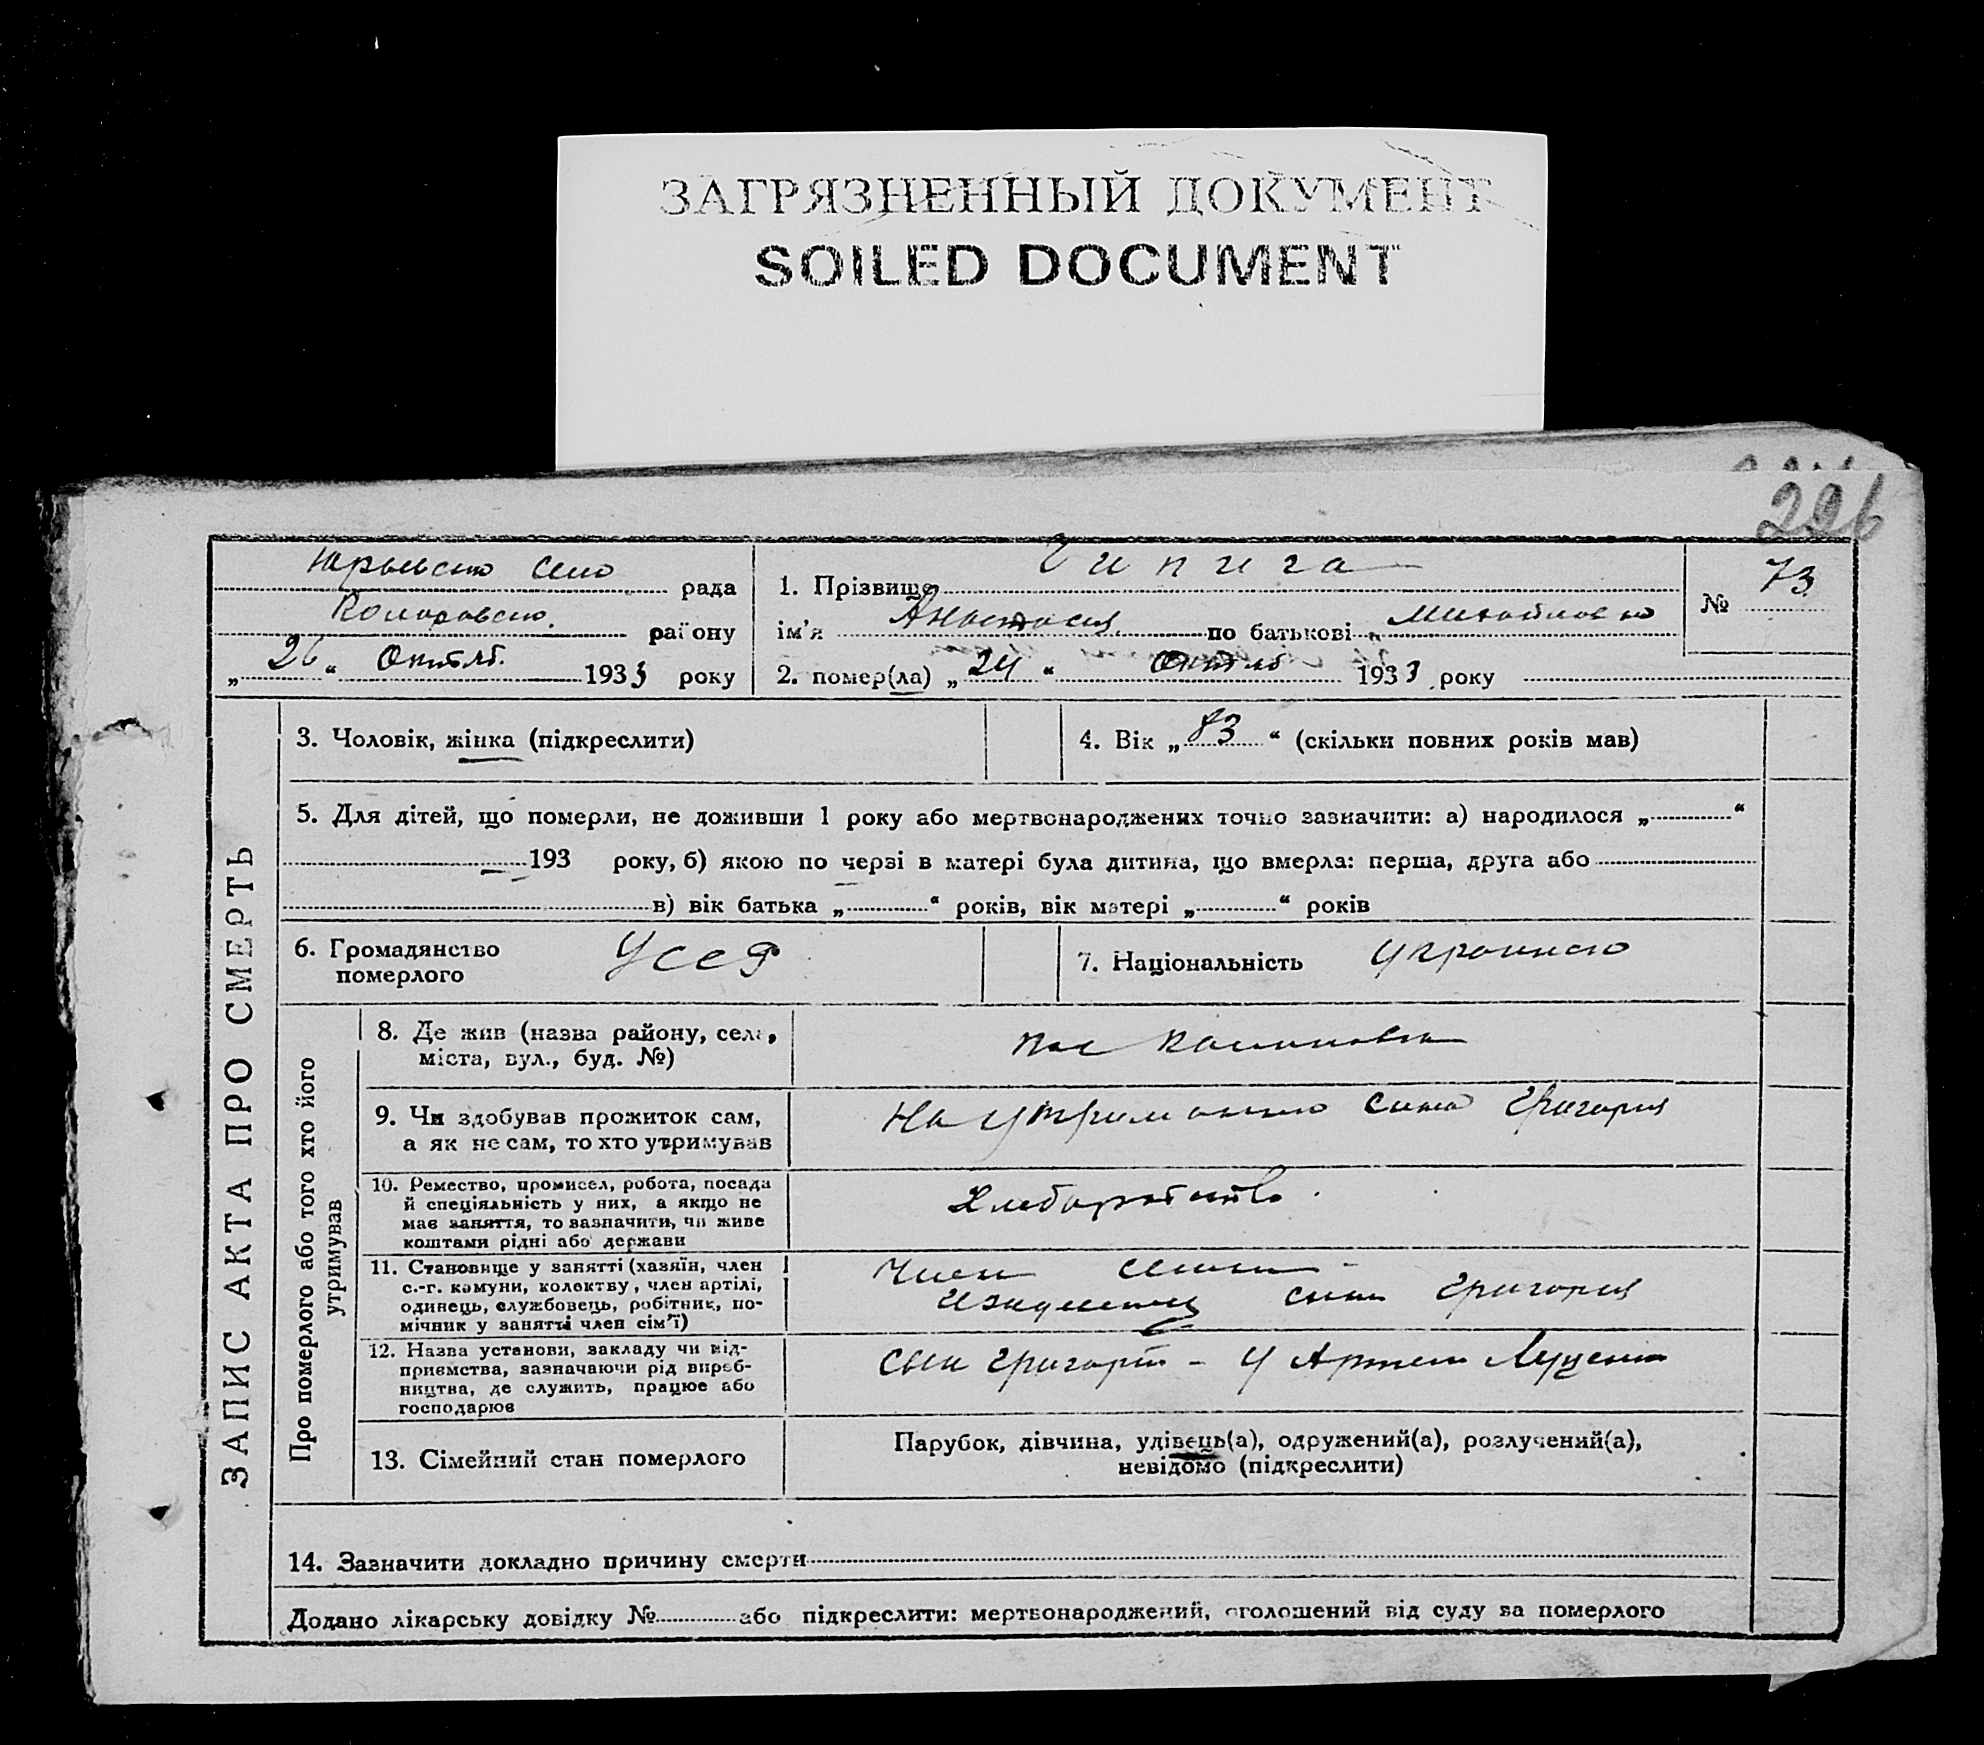 ЗАГРЯЗНЕННЫЙ ДОКУМЕНТ
SOILED DOCUMENT
226
Юрьевсто Село рада
району
„ 26 “ Октяб. 1933 року
1. Прізвище Чипига
ім'я Анастасия по батькові
2. помер(ла) „ 24 “ Октяб 1933 року
№ 73
ЗАПИС АКТА ПРО СМЕРТЬ
3. Чоловік, жінка (підкреслити)
4. Вік „ 83 “ (скільки повних років мав)
5. Для дітей, що померли, не доживши 1 року або мертвонароджених точно зазначити: а) народилося „ “
193 року, б) якою по черзі в матері була дитина, що вмерла: перша, друга або
в) вік батька „ “ років, вік матері „ “ років
6. Громадянство
померлого
УССР
7. Національність
Про померлого або того хто його
утримував
8. Де жив (назва району, села,
міста, вул., буд. №)
9. Чи здобував прожиток сам,
а як не сам, то хто утримував
На сина Григория
10. Ремество, промисел, робота, посада
й спеціяльність у них, а якщо не
має заняття, то зазначити, чи живе
коштами рідні або держави
11. Становище у занятті (хазяїн, член
с.-г. комуни, колективу, член артілі,
одинець, службовець, робітник, по-
мічник у занятті член сім'ї)
Член
сина Григория
12. Назва установи, закладу чи від-
приємства, зазначаючи рід вироб-
ництва, де служить, працює або
господарює
сын - у Артели
13. Сімейний стан померлого
Парубок, дівчина, удівець(а), одружений(а), розлучений(а),
невідомо (підкреслити)
14. Зазначити докладно причину смерти
Додано лікарську довідку № або підкреслити: мертвонароджений, оголошений від суду за померлого